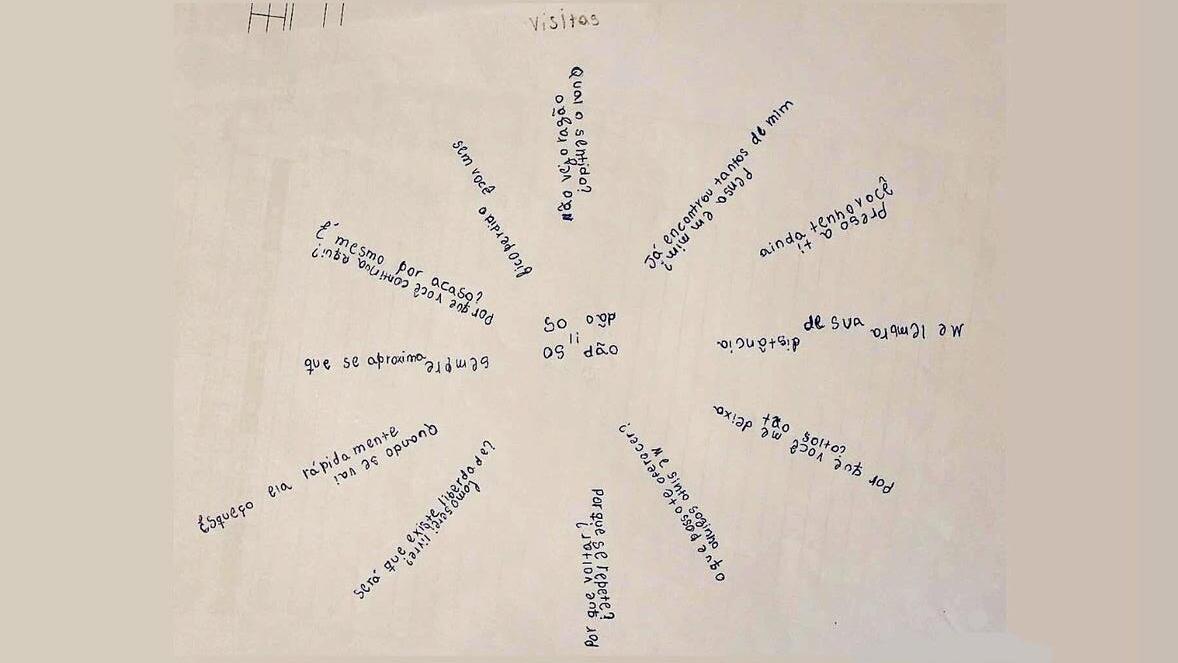 Visitas
Qual o sentido?
Não vejo razão
Já encontrou tantos de mim
Pensa em mim?
ainda tenho você
preso a ti
Me lembra
de sua
distância
Por que você me deixa
tão
O que posso te oferecer?
Me sinto
Por que se repete?
Por que voltar?
Será que existe liberdade?
Como serei livre?
Esqueço ela rápidamente
Quando se vai
sempre
que se aproxima
É mesmo por acaso?
Por que você continua aqui?
sem você
fico perdido
so dão
so dão